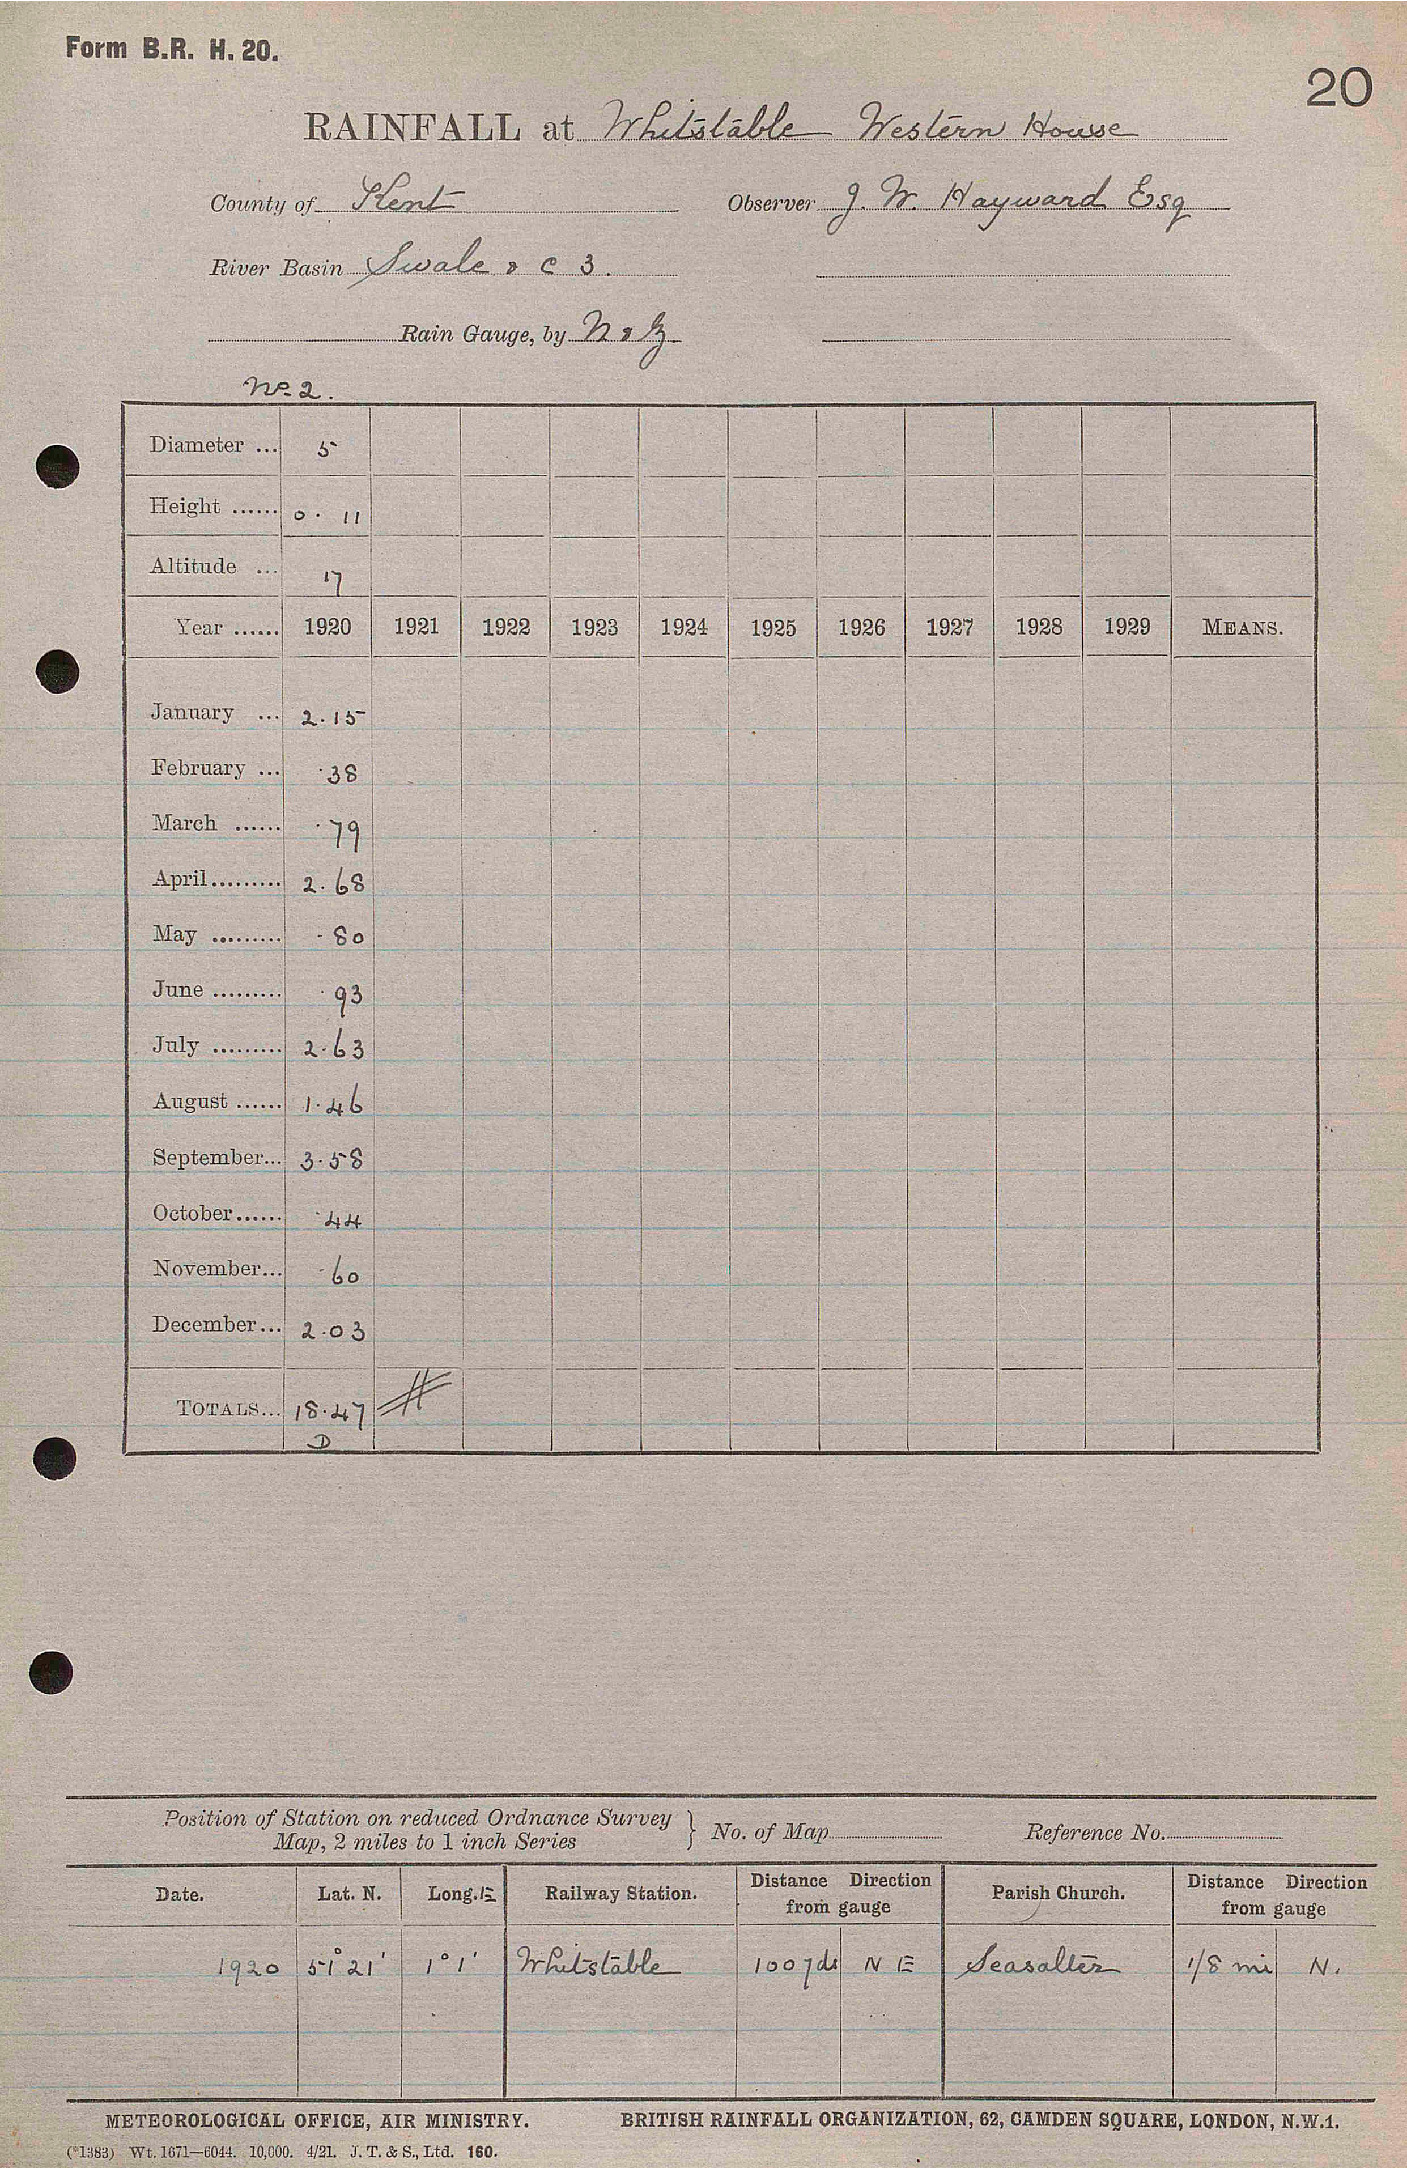 Form B.R. H. 20.
20
RAINFALL at Whitstable Western House
County of Kent Observer J. W. Hayward Esq
River Basin Swale & C 3.
Rain Gauge, by N & Z
No. 2.
Diameter ... 5
Height ...... 0. 11
Altitude ... 17
Year ...... 1920 1921 1922 1923 1924 1925 1926 1927 1928 1929 MEANS.
January ... 2.15
February ... .38
March ...... .79
April......... 2.68
May ......... .80
June ......... .93
July ......... 2.63
August ...... 1.46
September... 3.58
October...... .44
November... .60
December... 2.03
TOTALS... 18.47 #
D
Position of Station on reduced Ordnance Survey
Map, 2 miles to 1 inch Series } No. of Map Reference No.
Date. Lat. N. Long. E Railway Station. Distance Direction from gauge Parish Church. Distance Direction from gauge
1920 51° 21' 1° 1' Whitstable 100 yds N E Seasalter 1/8 mi N.
METEOROLOGICAL OFFICE, AIR MINISTRY. BRITISH RAINFALL ORGANIZATION, 62, CAMDEN SQUARE, LONDON, N.W.1.
(*1383) Wt. 1671—6044. 10,000. 4/21. J. T. & S., Ltd. 160.